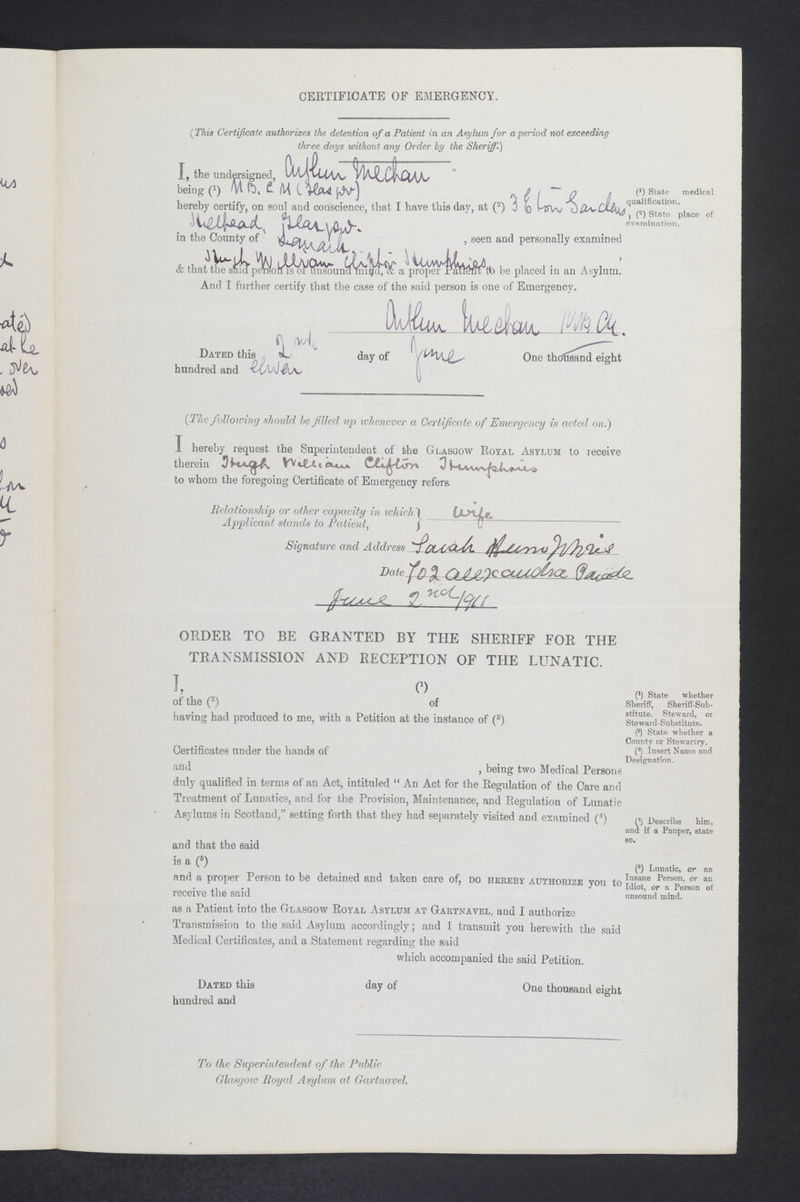 CERTIFICATE OF EMERGENCY.
(This Certificate authorizes the detention of a Patient in an Asylum for a period not exceeding
three days without any Order by the Sheriff.)
I, the undersigned, Arthur Mechan
being (¹) M.B. C M (Glasgow)
(¹) State medical
qualification.
hereby certify, on soul and conscience, that I have this day, at (²) 3 Eton Gardens
, (²) State place of
examination.
Hillhead, Glasgow.
in the County of Lanark , seen and personally examined
Hugh William Clifton Humphries ,
& that the said person is of unsound mind, & a proper Patient to be placed in an Asylum.
And I further certify that the case of the said person is one of Emergency.
Arthur Mechan MB CM.
DATED this 2nd day of June One thousand eight
hundred and eleven
(The following should be filled up whenever a Certificate of Emergency is acted on.)
I hereby request the Superintendent of the GLASGOW ROYAL ASYLUM to receive
therein Hugh William Clifton Humphries
to whom the foregoing Certificate of Emergency refers.
Relationship or other capacity in which
Applicant stands to Patient, } Wife
Signature and Address Sarah Humphries
Date 702 Alexandra Parade
June 2nd/1911
ORDER TO BE GRANTED BY THE SHERIFF FOR THE
TRANSMISSION AND RECEPTION OF THE LUNATIC.
I, (¹)
of the (²) of
having had produced to me, with a Petition at the instance of (³)
(¹) State whether
Sheriff, Sheriff-Sub-
stitute, Steward, or
Steward-Substitute.
(²) State whether a
County or Stewartry.
(³) Insert Name and
Designation.
Certificates under the hands of
and , being two Medical Persons
duly qualified in terms of an Act, intituled "An Act for the Regulation of the Care and
Treatment of Lunatics, and for the Provision, Maintenance, and Regulation of Lunatic
Asylums in Scotland," setting forth that they had separately visited and examined (⁴)
(⁴) Describe him,
and if a Pauper, state
so.
and that the said
is a (⁵)
and a proper Person to be detained and taken care of, DO HEREBY AUTHORIZE you to
receive the said
(⁵) Lunatic, or an
Insane Person, or an
Idiot, or a Person of
unsound mind.
as a Patient into the GLASGOW ROYAL ASYLUM AT GARTNAVEL, and I authorize
Transmission to the said Asylum accordingly; and I transmit you herewith the said
Medical Certificates, and a Statement regarding the said
which accompanied the said Petition.
DATED this day of One thousand eight
hundred and
To the Superintendent of the Public
Glasgow Royal Asylum at Gartnavel.